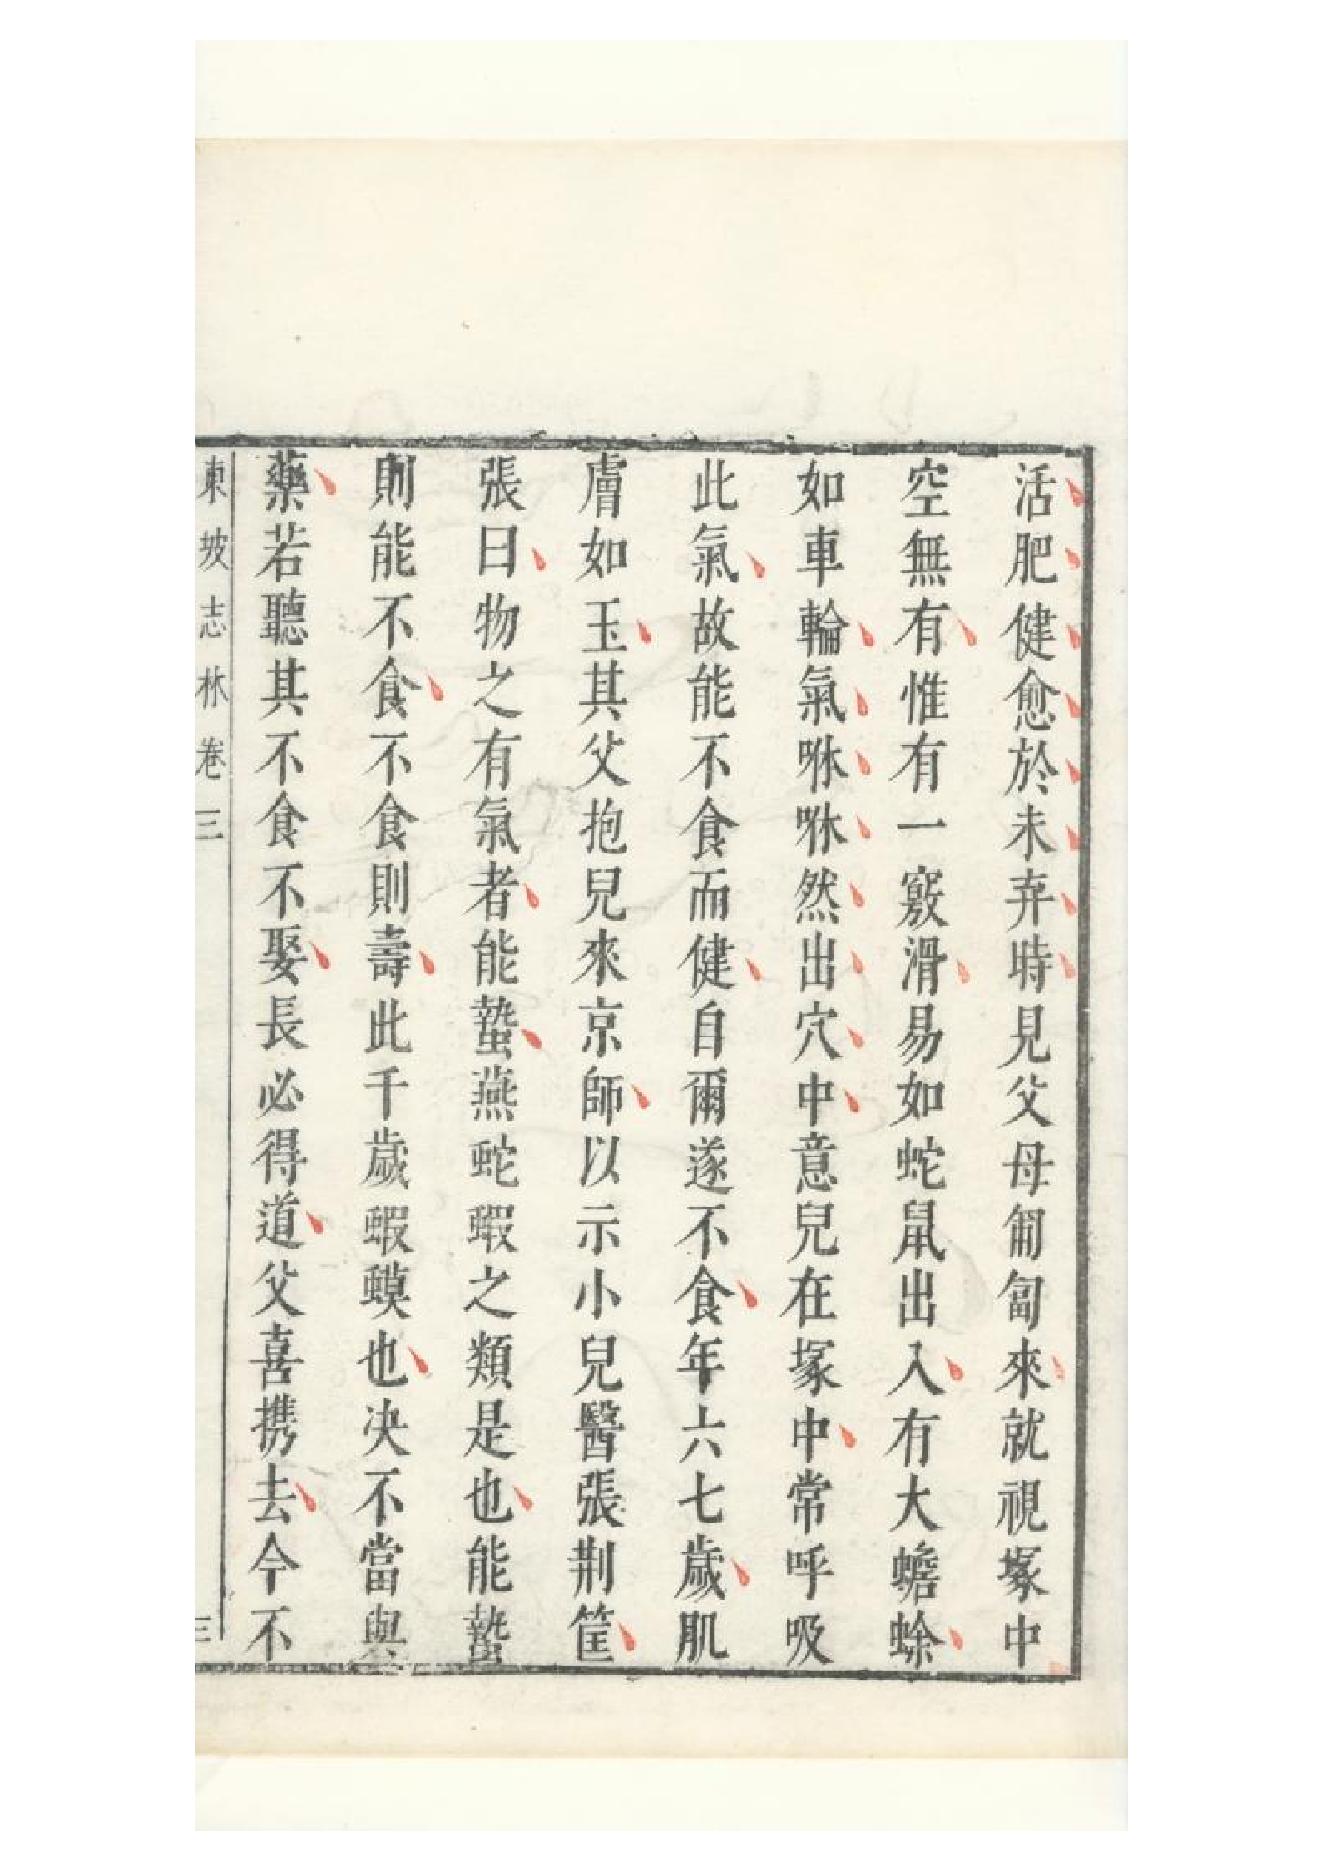 活肥健愈於未弃時見父母匍匐來就視塚中
空無有惟有一竅滑易如蛇鼠出入有大蟾蜍
如車輪氣咻咻然出穴中意兒在塚中常呼吸
此氣故能不食而健自爾遂不食年六七歲肌
膚如玉其父抱兒來京師以示小兒醫張荆筐
張曰物之有氣者能蟄燕蛇蝦之類是也能蟄
則能不食不食則壽此千歲蝦蟆也决不當與
藥若聽其不食不娶長必得道父喜携去今不
東坡志林卷三
三